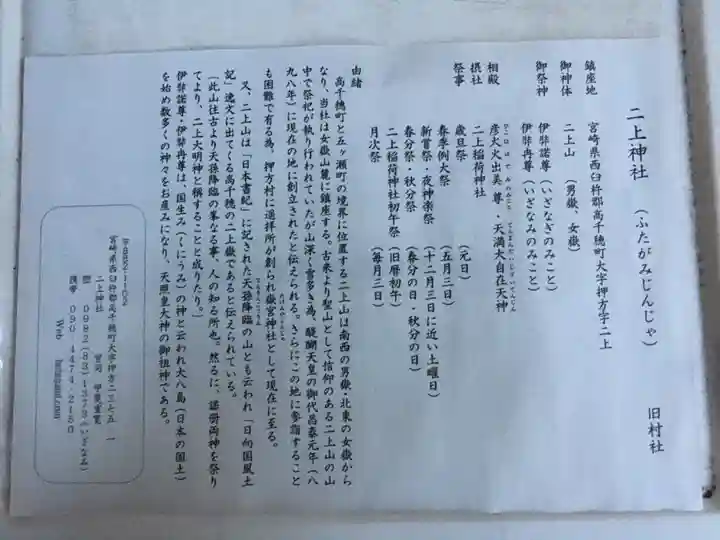 二上神社 (ふたがみじんじゃ) 旧村社
鎮座地 宮崎県西臼杵郡高千穂町大字押方字二上
御神体 二上山 (男嶽、女嶽)
御祭神 伊弉諾尊 (いざなぎのみこと)
伊弉冉尊 (いざなみのみこと)
相殿 彦火火出美尊・天満大自在天神
摂社 二上稲荷神社
祭事 歳旦祭 (元日)
春季例大祭 (五月三日)
新嘗祭・夜神楽祭 (十二月三日に近い土曜日)
春分祭・秋分祭 (春分の日・秋分の日)
二上稲荷神社初午祭 (旧暦初午)
月次祭 (毎月三日)
由緒
高千穂町と五ヶ瀬町の境界に位置する二上山は南西の男嶽・北東の女嶽から
なり、当社は女嶽山麓に鎮座する。古来より聖山として信仰のある二上山の山
中で祭祀が執り行われていたが山深く雪多き為、醍醐天皇の御代昌泰元年(八
九八年)に現在の地に創立されたと伝えられる。さらにこの地に参詣すること
も困難で有る為、押方村に遥拝所が創られ嶽宮神社として現在に至る。
又、二上山は「日本書紀」に記された天孫降臨の山とも云われ「日向国風土
記」逸文に出てくる高千穂の二上嶽であると伝えられている。
(此山往古より天孫降臨の峯なる事、人の知る所也。然るに、諾冊両神を祭り
てより、二上大明神と称することと成りたり。)
伊弉諾尊・伊弉冉尊は、国生み(くにうみ)の神と云われ大八島(日本の国土)
を始め数多くの神々をお産みになり、天照皇大神の御祖神である。
宮崎県西臼杵郡高千穂町大字押方二三七五‐一
二上神社 宮司 甲斐
0982(83)1373(いざなみ)
携帯 090‐4474‐2150
Web